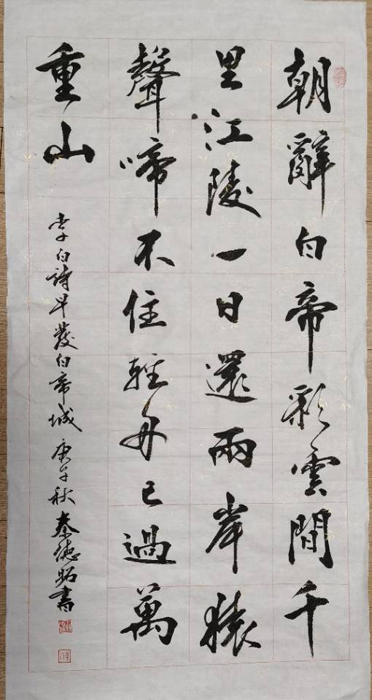 朝辭白帝彩雲間千
里江陵一日還兩岸猿
聲啼不住輕舟已過萬
重山
李白詩早發白帝城 庚子秋 秦德昭書